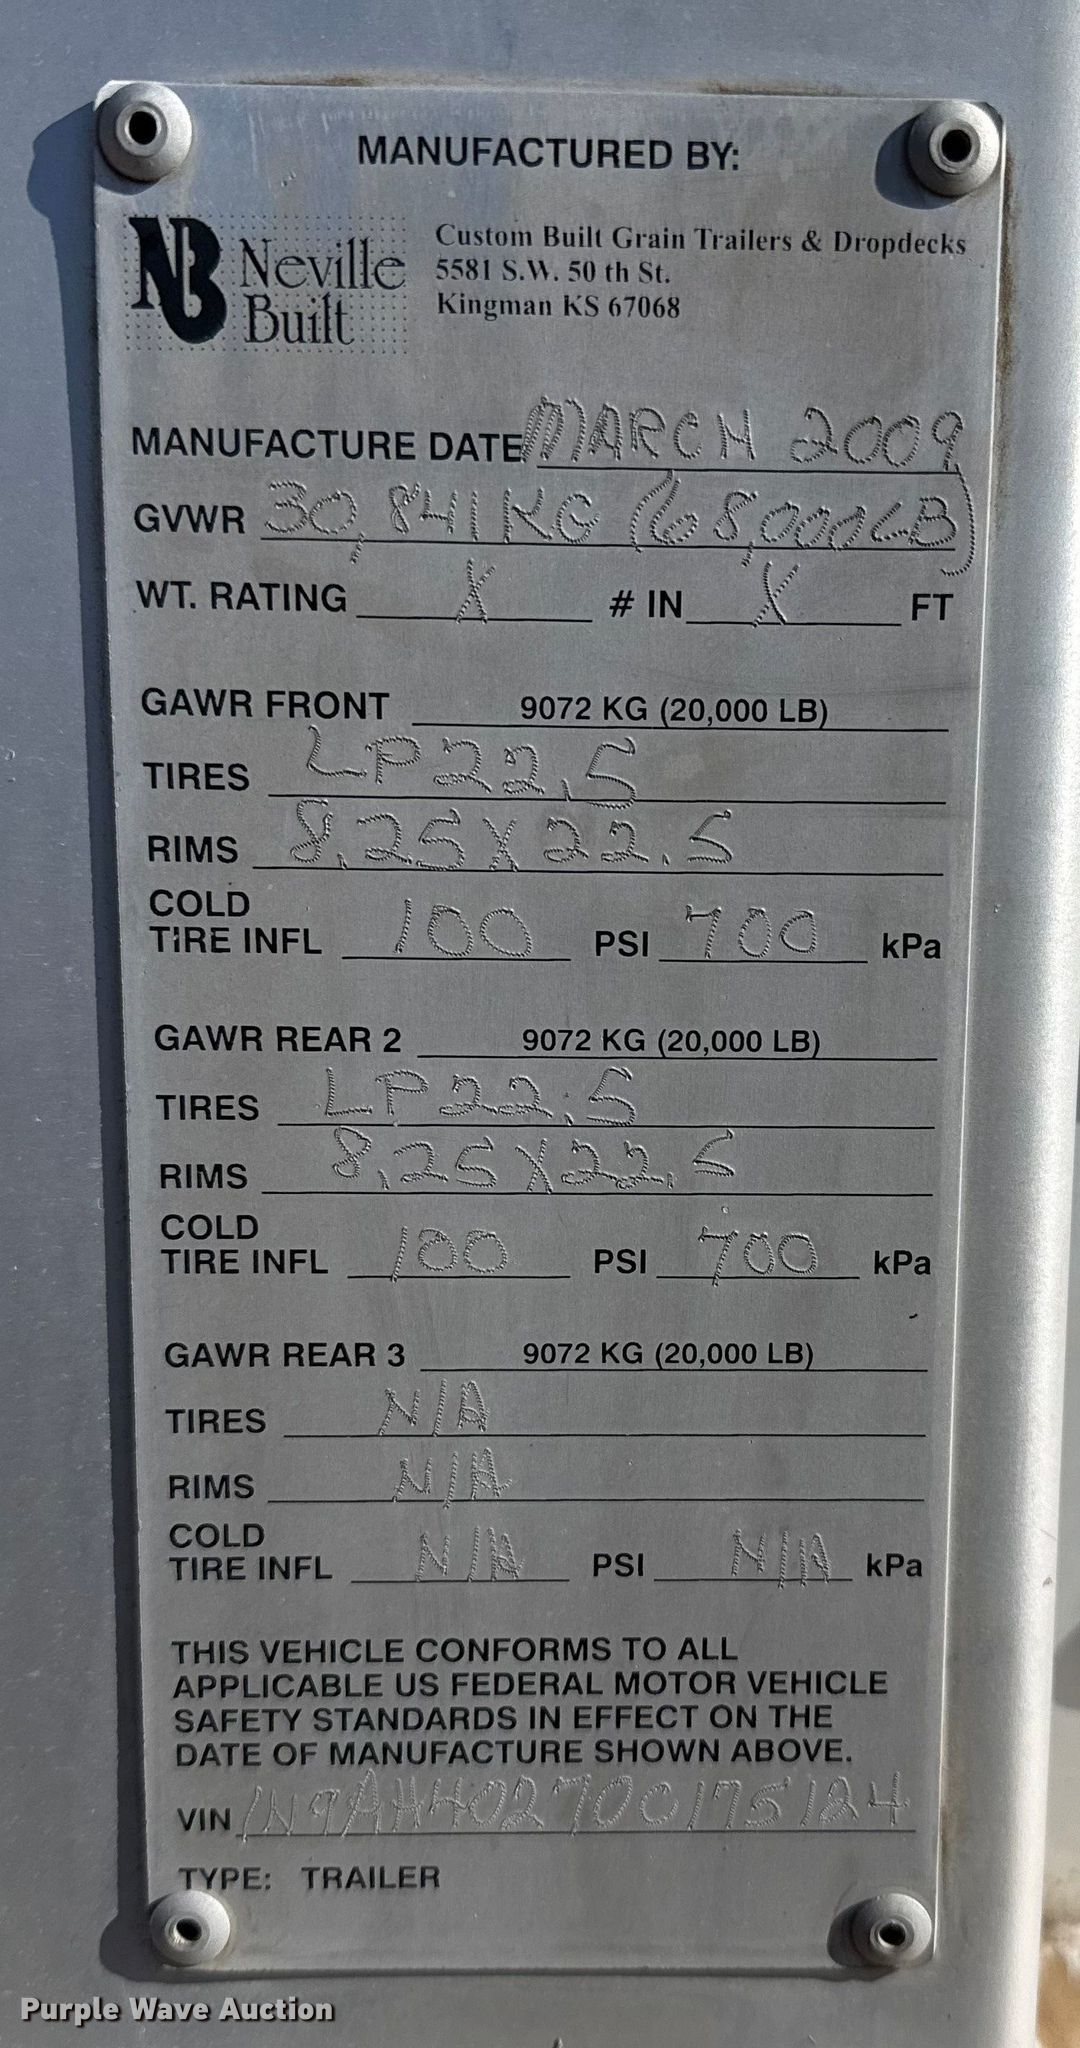 MANUFACTURED BY:
NB Neville Built
Custom Built Grain Trailers & Dropdecks
5581 S.W. 50 th St.
Kingman KS 67068
MANUFACTURE DATE MARCH 2009
GVWR 30,841KG (68,000LB)
WT. RATING X # IN X FT
GAWR FRONT 9072 KG (20,000 LB)
TIRES LP22.5
RIMS 8.25X22.5
COLD
TIRE INFL 100 PSI 700 kPa
GAWR REAR 2 9072 KG (20,000 LB)
TIRES LP22.5
RIMS 8.25X22.5
COLD
TIRE INFL 100 PSI 700 kPa
GAWR REAR 3 9072 KG (20,000 LB)
TIRES N/A
RIMS N/A
COLD
TIRE INFL N/A PSI N/A kPa
THIS VEHICLE CONFORMS TO ALL
APPLICABLE US FEDERAL MOTOR VEHICLE
SAFETY STANDARDS IN EFFECT ON THE
DATE OF MANUFACTURE SHOWN ABOVE.
VIN 1N9AH40270C175124
TYPE: TRAILER
Purple Wave Auction